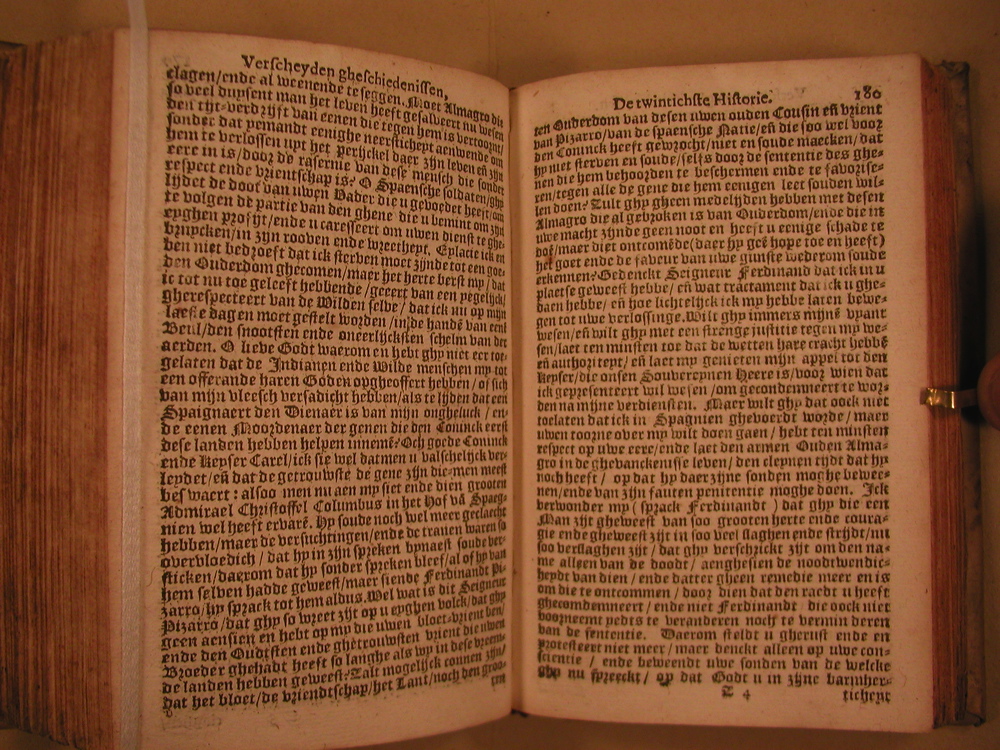 Verscheyden gheschiedenissen,
clagen/ende al weenende te seggen. Moet Almagro die
so veel duysent man het leven heeft gesalveert nu wesen
den tijt-verdrijf van eenen die tegen hem is vertoornt/
sonder dat yemandt eenighe neerstichept aenwende om
hem te verlossen upt het perijckel daer zijn leven eñ zijn
eere in is/door de rasernie van dese mensch die sonder
respect ende vrientschap is? O Spaensche soldaten/ghy
lijdet de doot van uwen Vader die u gevoedet heeft/om
te volgen de partie van den ghene die u bemint om zijn
eyghen profijt/ende u caresseert om uwen dienst te ghe-
bruycken/in zijn rooven ende wreetheyt. Eylacie ick en
ben niet bedroeft dat ick sterven moet zijnde tot een goe-
den Ouderdom ghecomen/maer het herte berst my/dat
ic tot nu toe geleeft hebbende/geeert van een yegelijck/
gherespecteert van de Wilden selve/dat ick nu op mijn
laeste dagen moet gestelt worden/in de handē van eenē
Beul/den snootsten ende oneerlijcksten schelm van der
aerden. O lieve Godt waerom en hebt ghy niet eer toe-
gelaten dat de Indianen ende Wilde menschen my tot
een offerande haren Goden opgheoffert hebben/of sich
van mijn vleesch versadicht hebben/als te lyden dat een
Spaignaert den Dienaer is van mijn ongheluck/en-
de eenen Moordenaer der genen die den Coninck eerst
dese landen hebben helpen innemē? Och goede Coninck
ende Keyser Carel/ick sie wel datmen u valschelijck ver-
leydet/eñ dat de getrouwste de gene zijn die-men meest
beswaert: alsoo men nu aen my siet ende dien grooten
Admirael Christoffel Columbus in het Hof vā Spaeg-
nien wel heeft ervarē. Hy soude noch wel meer geclaecht
hebben/maer de versuchtingen/ende de tranen waren so
overvloedich/dat hy in zijn spreken bynaest soude ver-
sticken/daerom dat hy sonder spreken bleef/al of hy van
hem selven hadde geweest/maer siende Ferdinandt Pi-
zarro/hy sprack tot hem aldus. Wel wat is dit Seigneur
Pizarro/dat ghy so wreet zijt op u eyghen volck/dat ghy
geen aensien en hebt op my die uwen bloet-vrient ben/
ende den Oudtsten ende ghetrouwsten vrient die uwen
Broeder ghehadt heeft so langhe als wy in dese vreem-
de landen hebben geweest? Talt mogelijck connen zijn/
dat het bloet/de vriendtschap/het Lant/noch den groo-
ten
De twintichste Historie. 180
ten Ouderdom van desen uwen ouden Cousin eñ vrient
van Pizarro/van de spaensche Natie/eñ die soo wel voor
den Coninck heeft gewrocht/niet en soude maecken/dat
hy niet sterven en soude/selfs door de sententie des ghe-
nen die hem behoorden te beschermen ende te favorise-
ren/tegen alle de gene die hem eenigen leet souden wil-
len doen? Sult ghy gheen medelijden hebben met desen
Almagro die al gebroken is van Ouderdom/ende die in
uwe macht zijnde geen noot en heeft u eenige schade te
doē/maer diet ontcomēde (daer hy geē hope toe en heeft)
het goet ende de faveur van uwe gunste wederom soude
erkennen? Gedenckt Seigneur Ferdinand dat ick in u
plaetse geweest hebbe/eñ wat tractament dat ick u ghe-
daen hebbe/eñ hoe lichtelijck ick my hebbe laten bewe-
gen tot uwe verlossinge. Wilt ghy immers mijnē vyant
wesen/eñ wilt ghy met een strenge justitie tegen my we-
sen/laet ten minsten toe dat de wetten hare cracht hebbē
eñ authoriteyt/eñ laet my genieten mijn appel tot den
Keyser/die onsen Souvereynen Heere is/voor wien dat
ick gepresenteert wil wesen/om gecondemneert te wor-
den na mijne verdiensten. Maer wilt ghy dat oock niet
toelaten dat ick in Spagnien ghevoerdt worde/maer
uwen toorne over my wilt doen gaen/hebt ten minsten
respect op uwe eere/ende laet den armen Ouden Alma-
gro in de ghevanckenisse leven/den cleynen tijdt dat hy
noch heeft/op dat hy daer zijne sonden moghe bewee-
nen/ende van zijn fauten penitentie moghe doen. Ick
verwonder my (sprack Ferdinandt) dat ghy die een
Man zijt gheweest van soo grooten herte ende coura-
gie ende gheweest zijt in soo veel slaghen ende strijdt/nu
soo verslaghen zijt/dat ghy verschrickt zijt om den na-
me alleen van de doodt/aenghesien de noodtwendic-
heydt van dien/ende datter gheen remedie meer en is
om die te ontcommen/door dien dat den raedt u heeft
ghecondemneert/ende niet Ferdinandt die oock niet
voorneemt yedts te veranderen noch te verminderen
van de sententie. Daerom steldt u gherust ende en
protesteert niet meer/maer denckt alleen op uwe con-
scientie/ende beweendt uwe sonden van de welcke
ghy nu spreeckt/op dat Godt u in zijne barmher-
Z 4 tichept